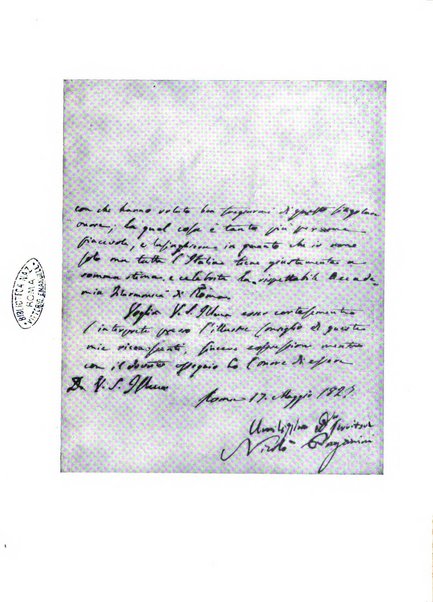 con che hanno voluto ben fregiarmi di questo singolare
onore; la qual cosa è tanto più per me
piacevole, e lusinghiera in quanto che io non
solo ma tutta l'Italia tiene giustamente in
somma stima e celebrità la rispettabile Accade-
mia Filarmonica di Roma.
Voglia V. S. Illma esser cortesemente
l'interprete presso l'illustre Consiglio di queste
mie riconoscenti, sincere espressioni mentre
con il dovuto ossequio ho l'onore di essere
Di V. S. Illma
Roma 17. Maggio 182
Umilissimo Servitore
Nicolò Paganini
BIBLIOTECA NAZ.
ROMA
VITTORIO EMANUELE